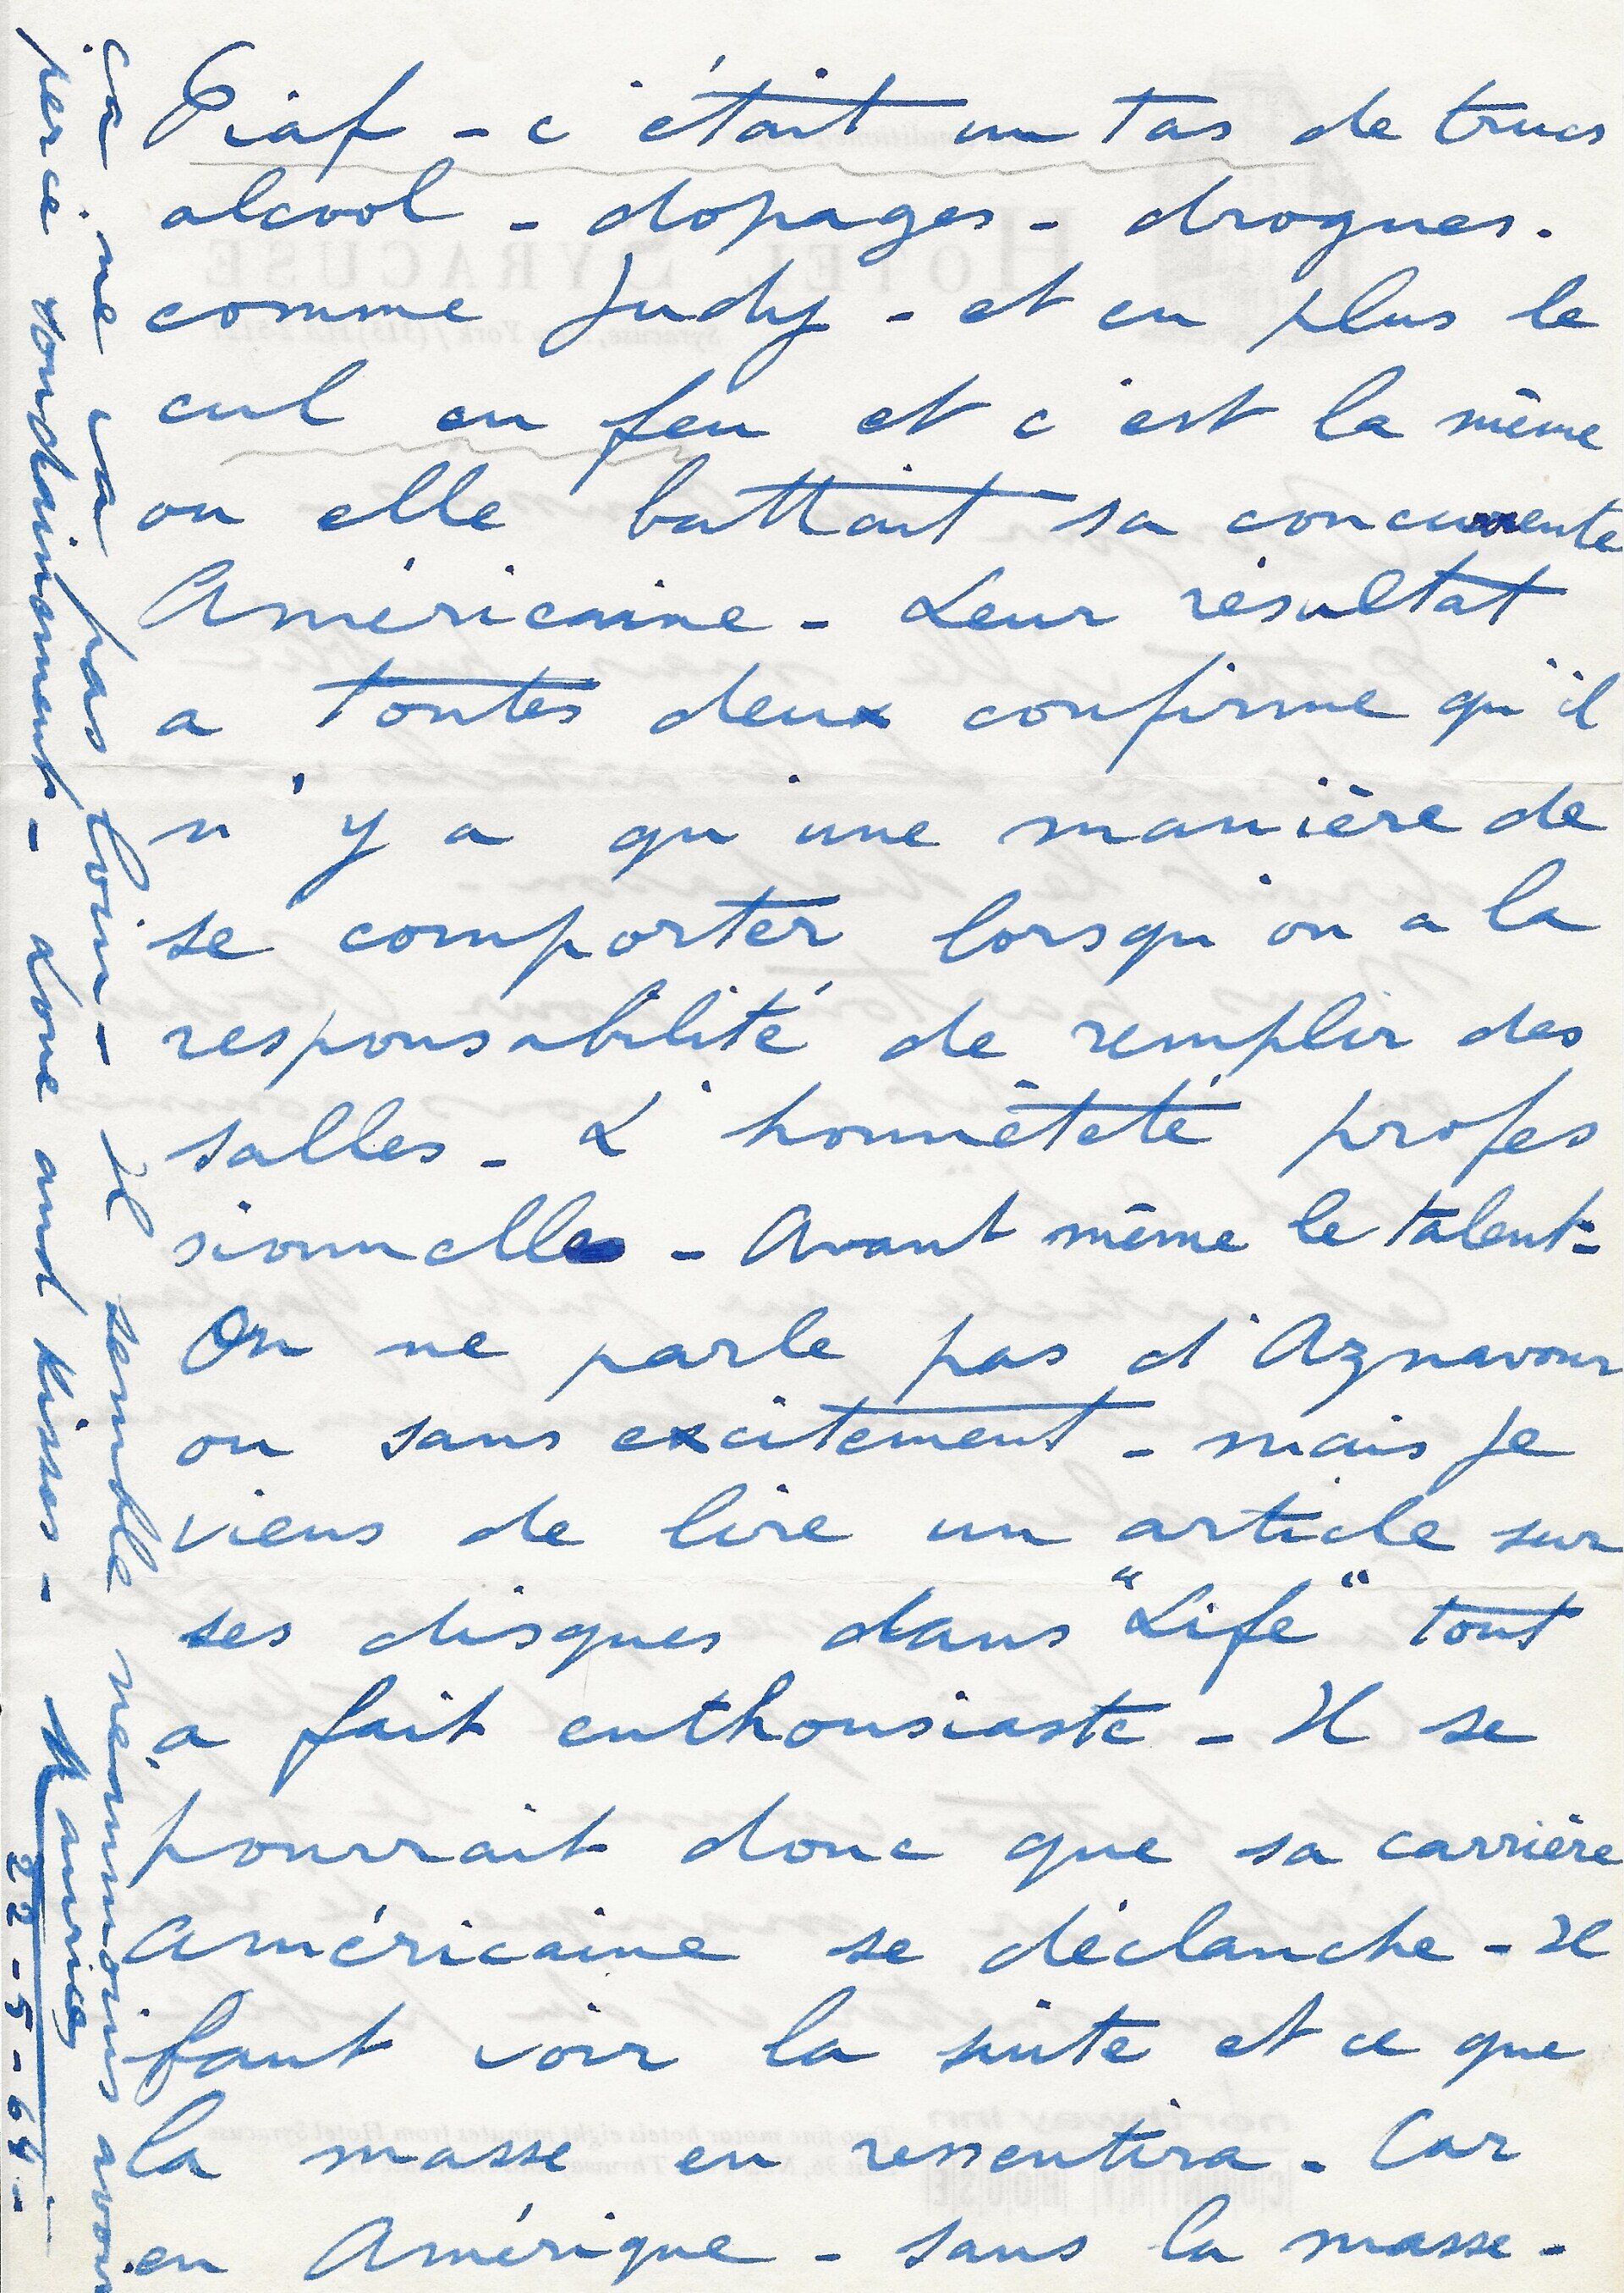 Piaf - c'était un tas de trucs
alcool - dopages - drogues.
comme Judy - et en plus le
cul en feu et c'est la même
ou elle battait sa concurrente
Américaine - Leur résultat
a toutes deux confirme qu'il
n'y a qu'une manière de
se comporter lorsqu'on a la
responsabilité de remplir des
salles - L'honnêteté profes
sionnelle - Avant même le talent -
On ne parle pas d'Aznavour
ou sans excitement - mais je
viens de lire un article sur
ses disques dans "Life" tout
a fait enthousiaste - Il se
pourrait donc que sa carrière
Américaine se déclanche - Il
faut voir la suite et ce que
la masse en ressentira - Car
en Amérique - sans la masse -
ça ne va pas loin - Il semble néanmoins avoir
percé soudainement - Love and kisses -
Maurice
22-5-64-
HOTEL SYRACUSE